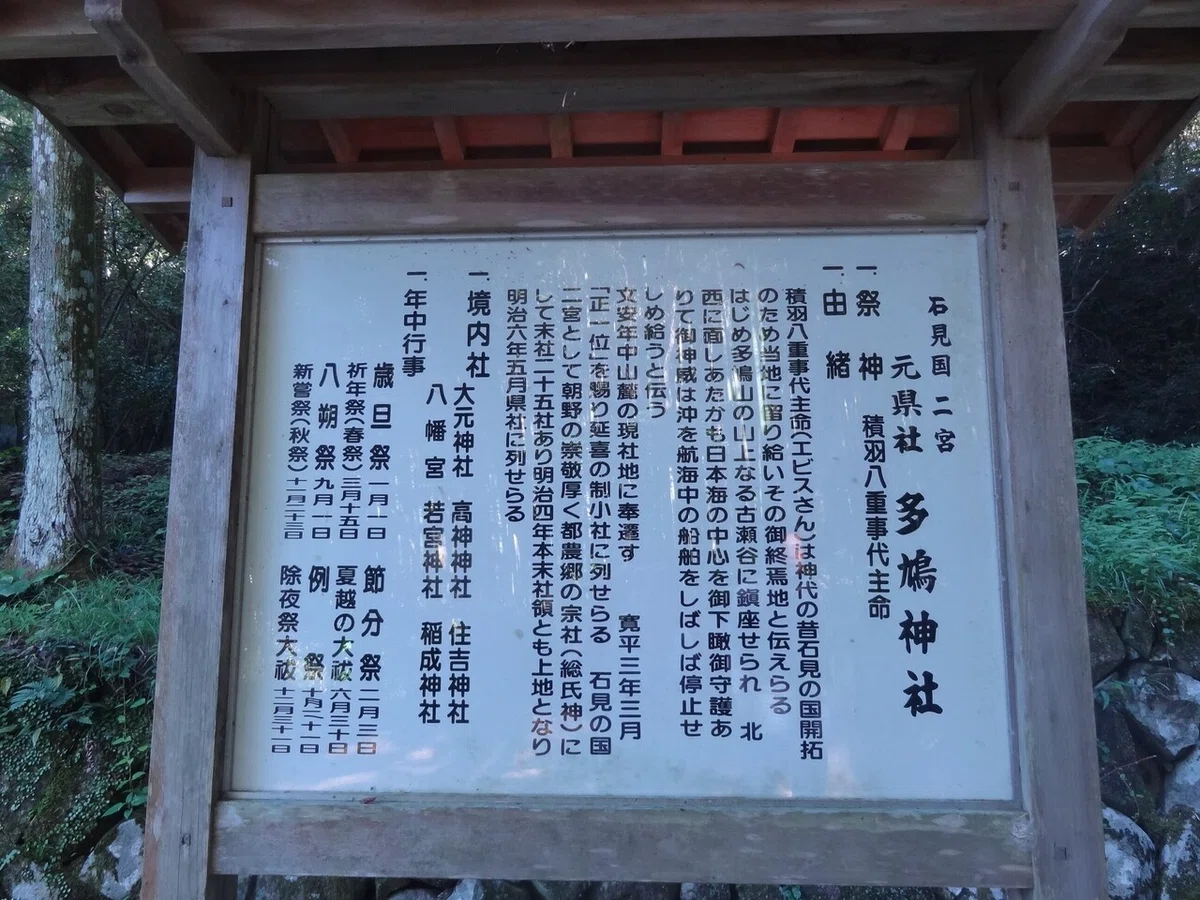 石見国 二宮
元県社 多鳩神社
一、祭 神 積羽八重事代主命
一、由 緒
積羽八重事代主命(エビスさん)は神代の昔石見の国開拓
のため当地に留り給いその御終焉地と伝えらる
はじめ多鳩山の山上なる古瀬谷に鎮座せられ 北
西に面しあたかも日本海の中心を御下瞰御守護あ
りて御神威は沖を航海中の船舶をしばしば停止せ
しめ給うと伝う
文安年中山麓の現社地に奉遷す 寛平三年三月
「正一位」を賜り延喜の制小社に列せらる 石見の国
二宮として朝野の崇敬厚く都農郷の宗社(総氏神)に
して末社二十五社あり明治四年本末社領とも上地となり
明治六年五月県社に列せらる
一、境内社
大元神社 高神神社 住吉神社
八幡宮 若宮神社 稲成神社
一、年中行事
歳旦祭 一月一日 節分祭 二月三日
祈年祭(春祭) 三月十五日 夏越の大祓 六月三十日
八朔祭 九月一日 例祭 十月二十一日
新嘗祭(秋祭) 十一月二十三日 除夜祭大祓 十二月三十一日